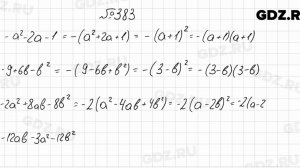 №383
GDZ.RU
-a²-2a-1 = -(a²+2a+1) = -(a+1)² = -(a+1)(a+1)
-9+6b-b² = -(9-6b+b²) = -(3-b)² = -(3-b)(3-b)
-2a²+8ab-8b² = -2(a²-4ab+4b²) = -2(a-2b)² = -2(a-2
-12ab-3a²-12b²